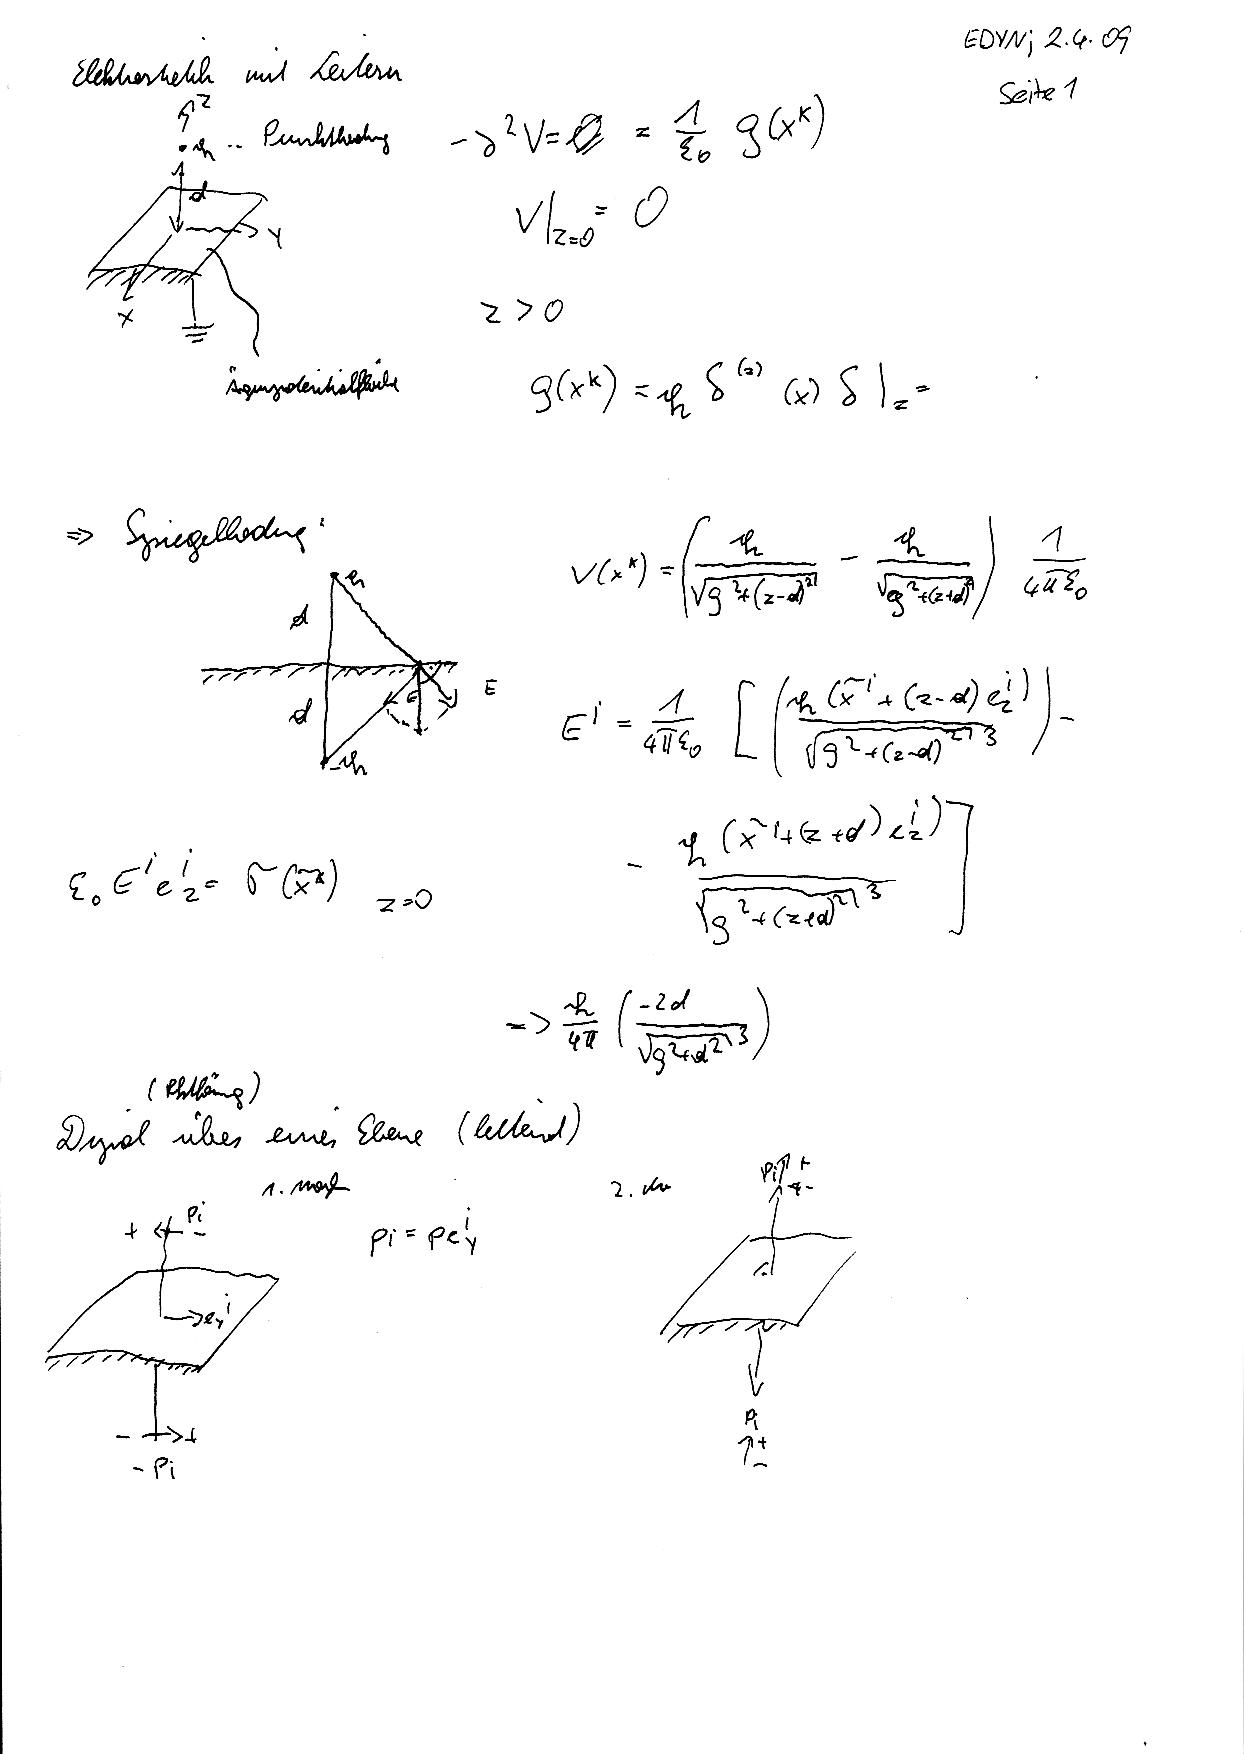 EDYN; 2.4.09
Seite 1
Elektrostatik mit Leitern
z
q .. Punktladung
d
y
x
Äquipotentialfläche
-∂²V = 0 = 1/ε₀ ρ(xᵏ)
V|z=0 = 0
z > 0
ρ(xᵏ) = q δ⁽²⁾ (x) δ|z=
=> Spiegelladung:
q
d
d
-q
E
E
V(xᵏ) = (q/√(ρ²+(z-d)²) - q/√(ρ²+(z+d)²)) 1/(4πε₀)
Eⁱ = 1/(4πε₀) [(q(x̃ⁱ+(z-d)e_zⁱ)/√(ρ²+(z-d)²)³) -
- q(x̃ⁱ+(z+d)e_zⁱ)/√(ρ²+(z+d)²)³]
ε₀Eⁱe_zⁱ = σ(x̃ᵏ) z=0
=> q/4π (-2d/√(ρ²+d²)³)
Dipol über einer Ebene (leitend)
1.
2.
+ pᵢ -
pᵢ = p e_yⁱ
e_yⁱ
- +
-pᵢ
pᵢ + -
pᵢ
+
-